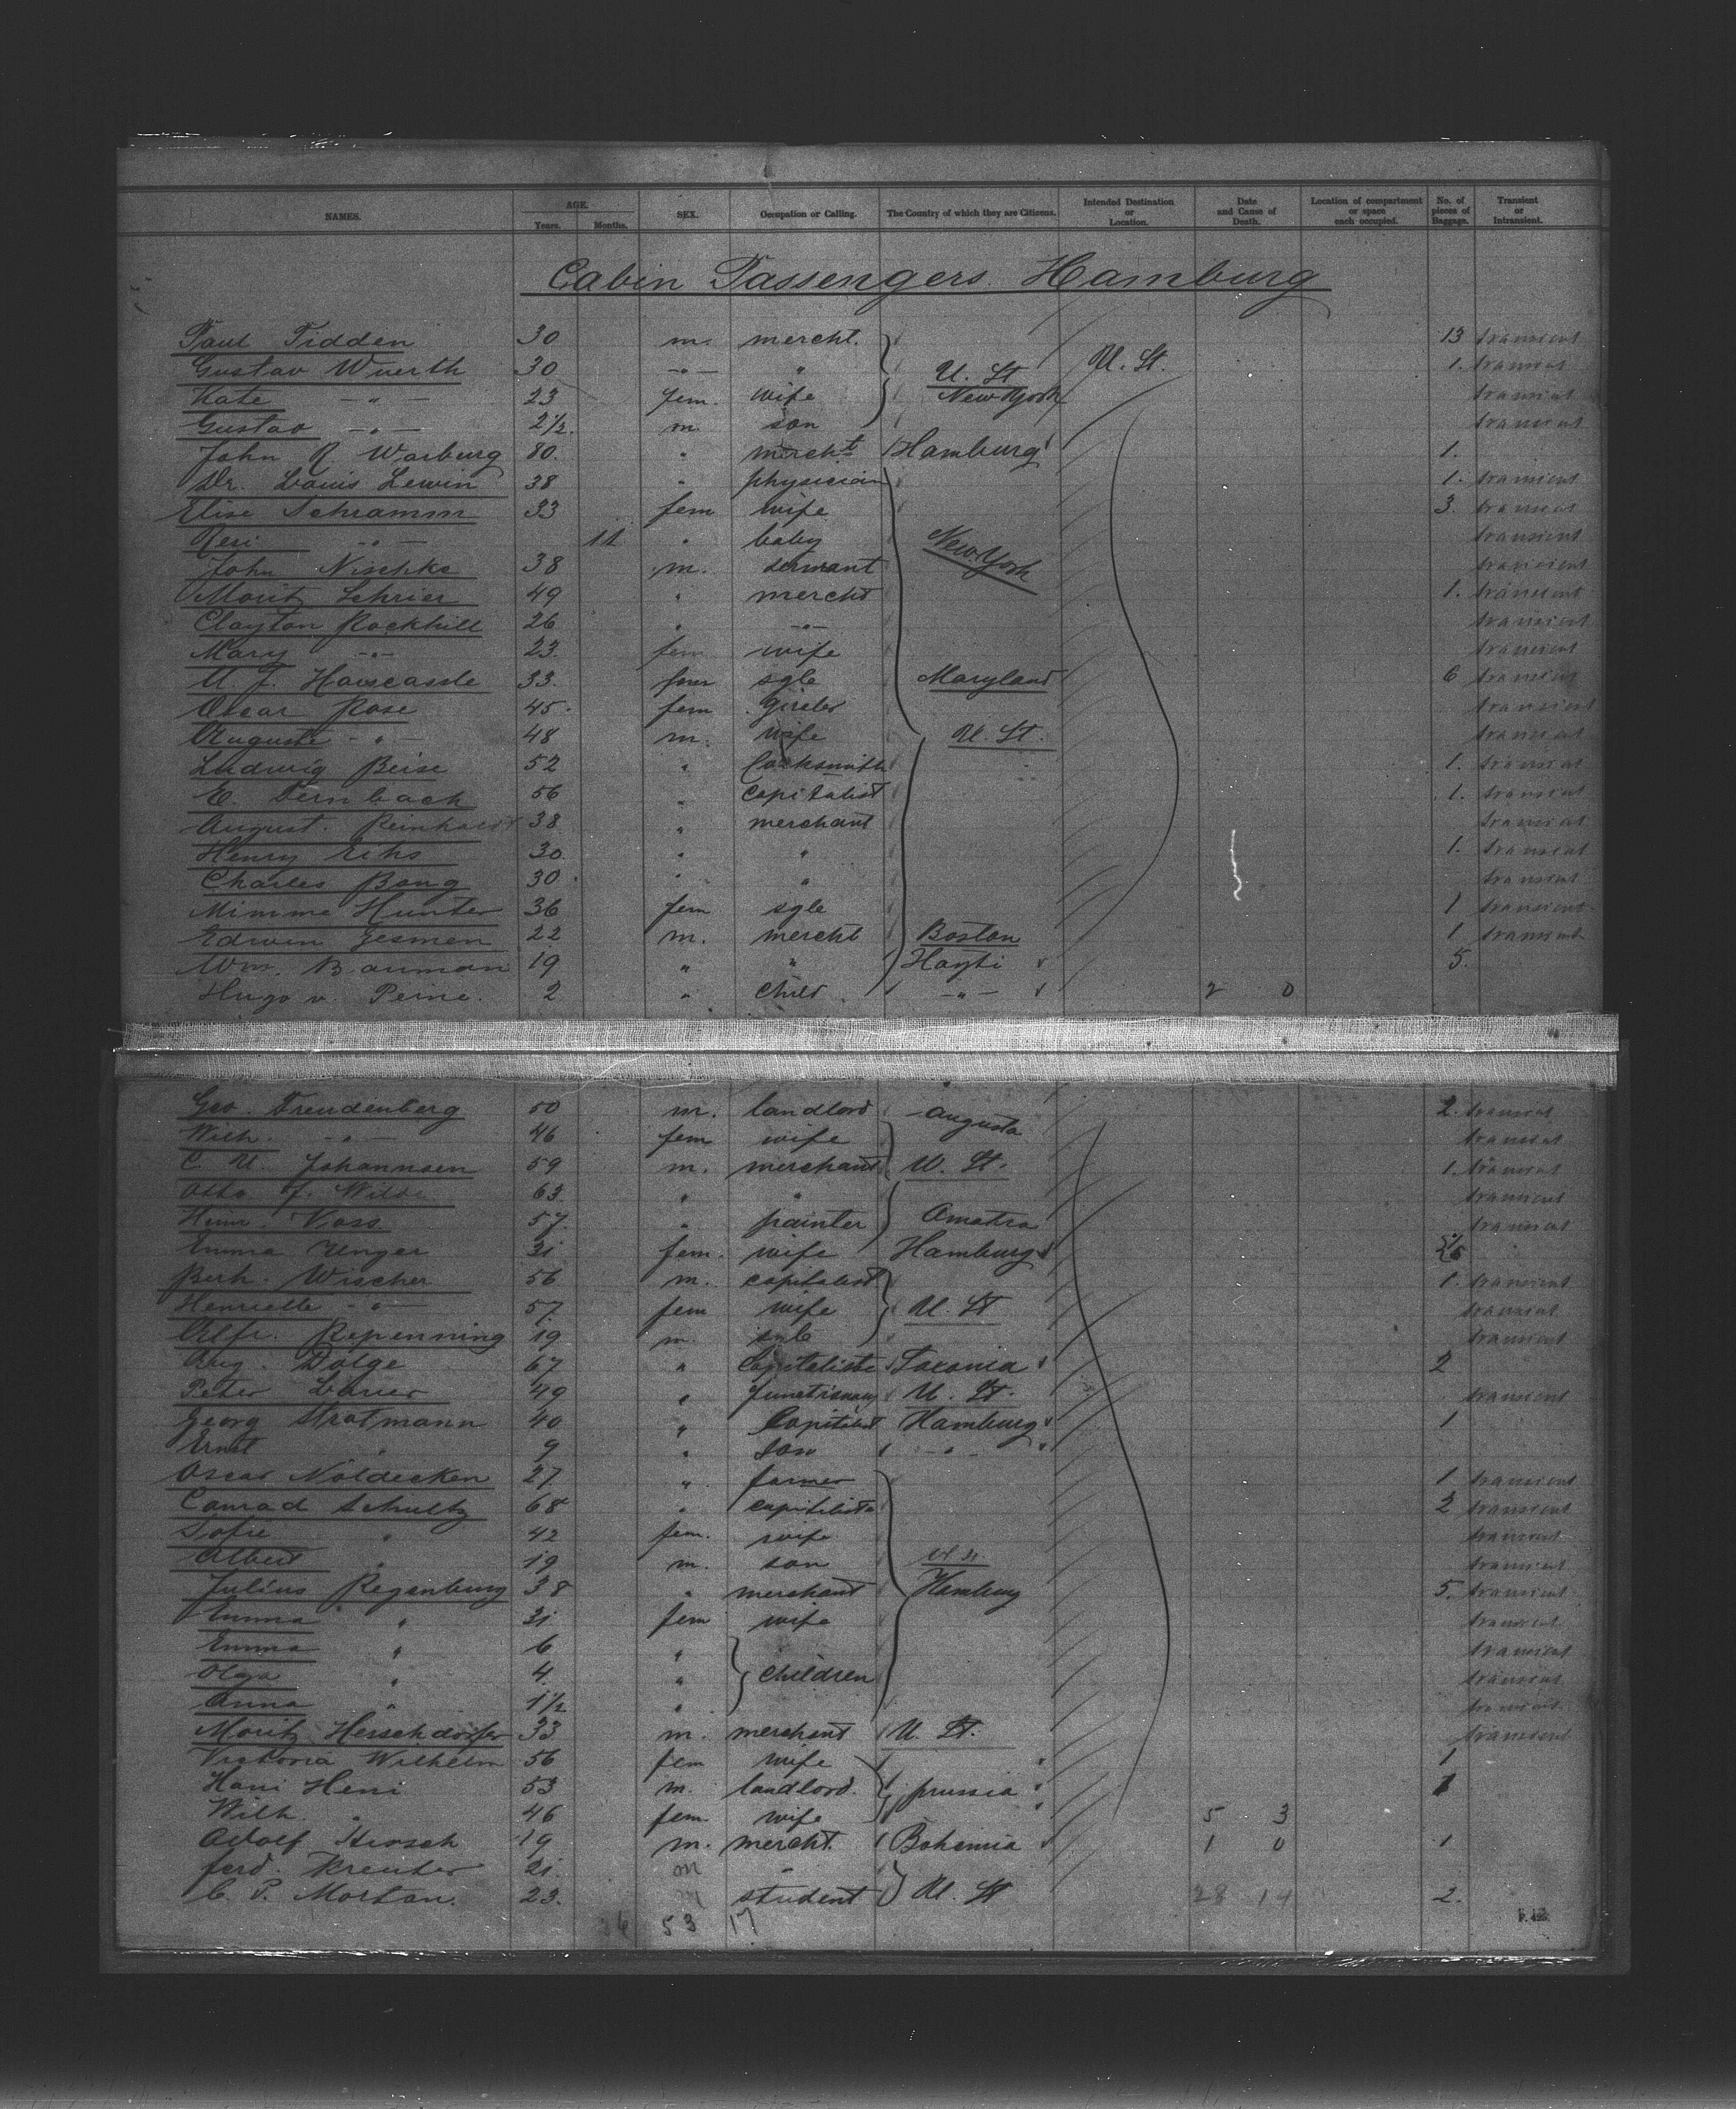 NAMES. AGE. Years. Months. SEX. Occupation or Calling. The Country of which they are Citizens. Intended Destination or Location. Date and Cause of Death. Location of compartment or space each occupied. No. of pieces of Baggage. Transient or Intransient.
Cabin Passengers Hamburg
Paul Tidden 30 m. mercht. 13 transient
Gustav Wuerth 30 -"- " U. St. U. St. 1. transient
Kate -"- 23 fem. wife New York transient
Gustav -"- 2½. m son transient
John R Warburg 80. " mercht Hamburg 1.
Dr. Louis Lewin 38 " physician 1. transient
Elise Schramm 33 fem wife 3. transient
Resi -"- 11 " baby New York transient
John Nischke 38 m. servant transient
Moritz Schrier 49 " mercht 1. transient
Clayton Rockhill 26 " -"- transient
Mary -"- 23. fem wife transient
33. sgle Maryland 6 transient
Oscar Rose 45. fem transient
Auguste -"- 48 m. wife U. St. transient
Ludwig Beise 52 " Locksmith 1. transient
E. Fernbach 56 " capitalist 1. transient
August. Reinhardt 38 " merchant transient
Henry 30. " " 1. transient
Charles Bang 30. " " transient
Mimme Hunter 36 fem sgle 1 transient
Edwin Jesmen 22 m. mercht Boston 1 transient
Wm. Bauman 19 " " Hayti 5.
Hugo v. Peine. 2 " child -"- 2 0
Geo. Freudenberg 50 m. landlord Augusta 2. transient
Wilh. -"- 46 fem wife transient
C. U. Johannsen 59 m. merchant U. St. 1. transient
Otto J. Wilde 63. " " transient
Heinr. Voss 57. " painter transient
Emma Unger 31 fem. wife Hamburg
Berh. Wischer 56 m. capitalist 1. transient
Henriette -"- 57. fem wife U. St transient
Alfr. Repenning 19 m. transient
Aug. Dolge 67 " Capitaliste 2
Peter 49 " functionary U. St. transient
Georg Stratmann 40 " Capitalist Hamburg 1
Ernst " 9 " son -"-
Oscar Nöldecken 27 " farmer 1 transient
Conrad Schultz 68 " capitaliste 2 transient
Sofie " 42 fem. wife transient
Albert " 19 m. son U. St transient
Julius Regenburg 38 " merchant Hamburg 5. transient
Emma " 31 fem wife transient
Emma " 6 " transient
Olga " 4. " children transient
Anna " 1½ " transient
Moritz Herschdörfer 33 m. merchant U. St. transient
Victoria Wilhelm 56 fem wife 1
Hani Heni 53 m. landlord prussia 1
Wilh. " 46 fem. wife 5 3
Adolf Hirsch 19 m. mercht. Bohemia 1 0 1
Ferd. Kreuter 21. m "
C. P. Morton. 23. student U. St 28 14 2.
53 17